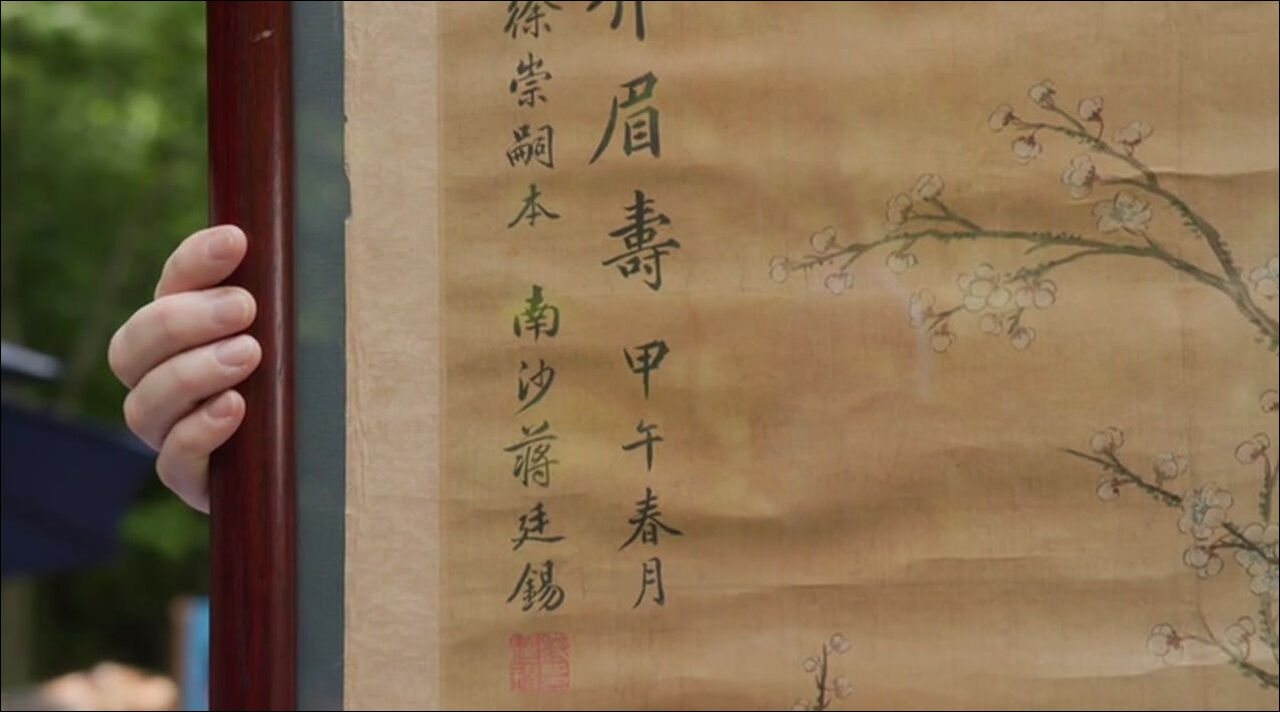 眉壽 甲午春月
徐崇嗣本 南沙蔣廷錫